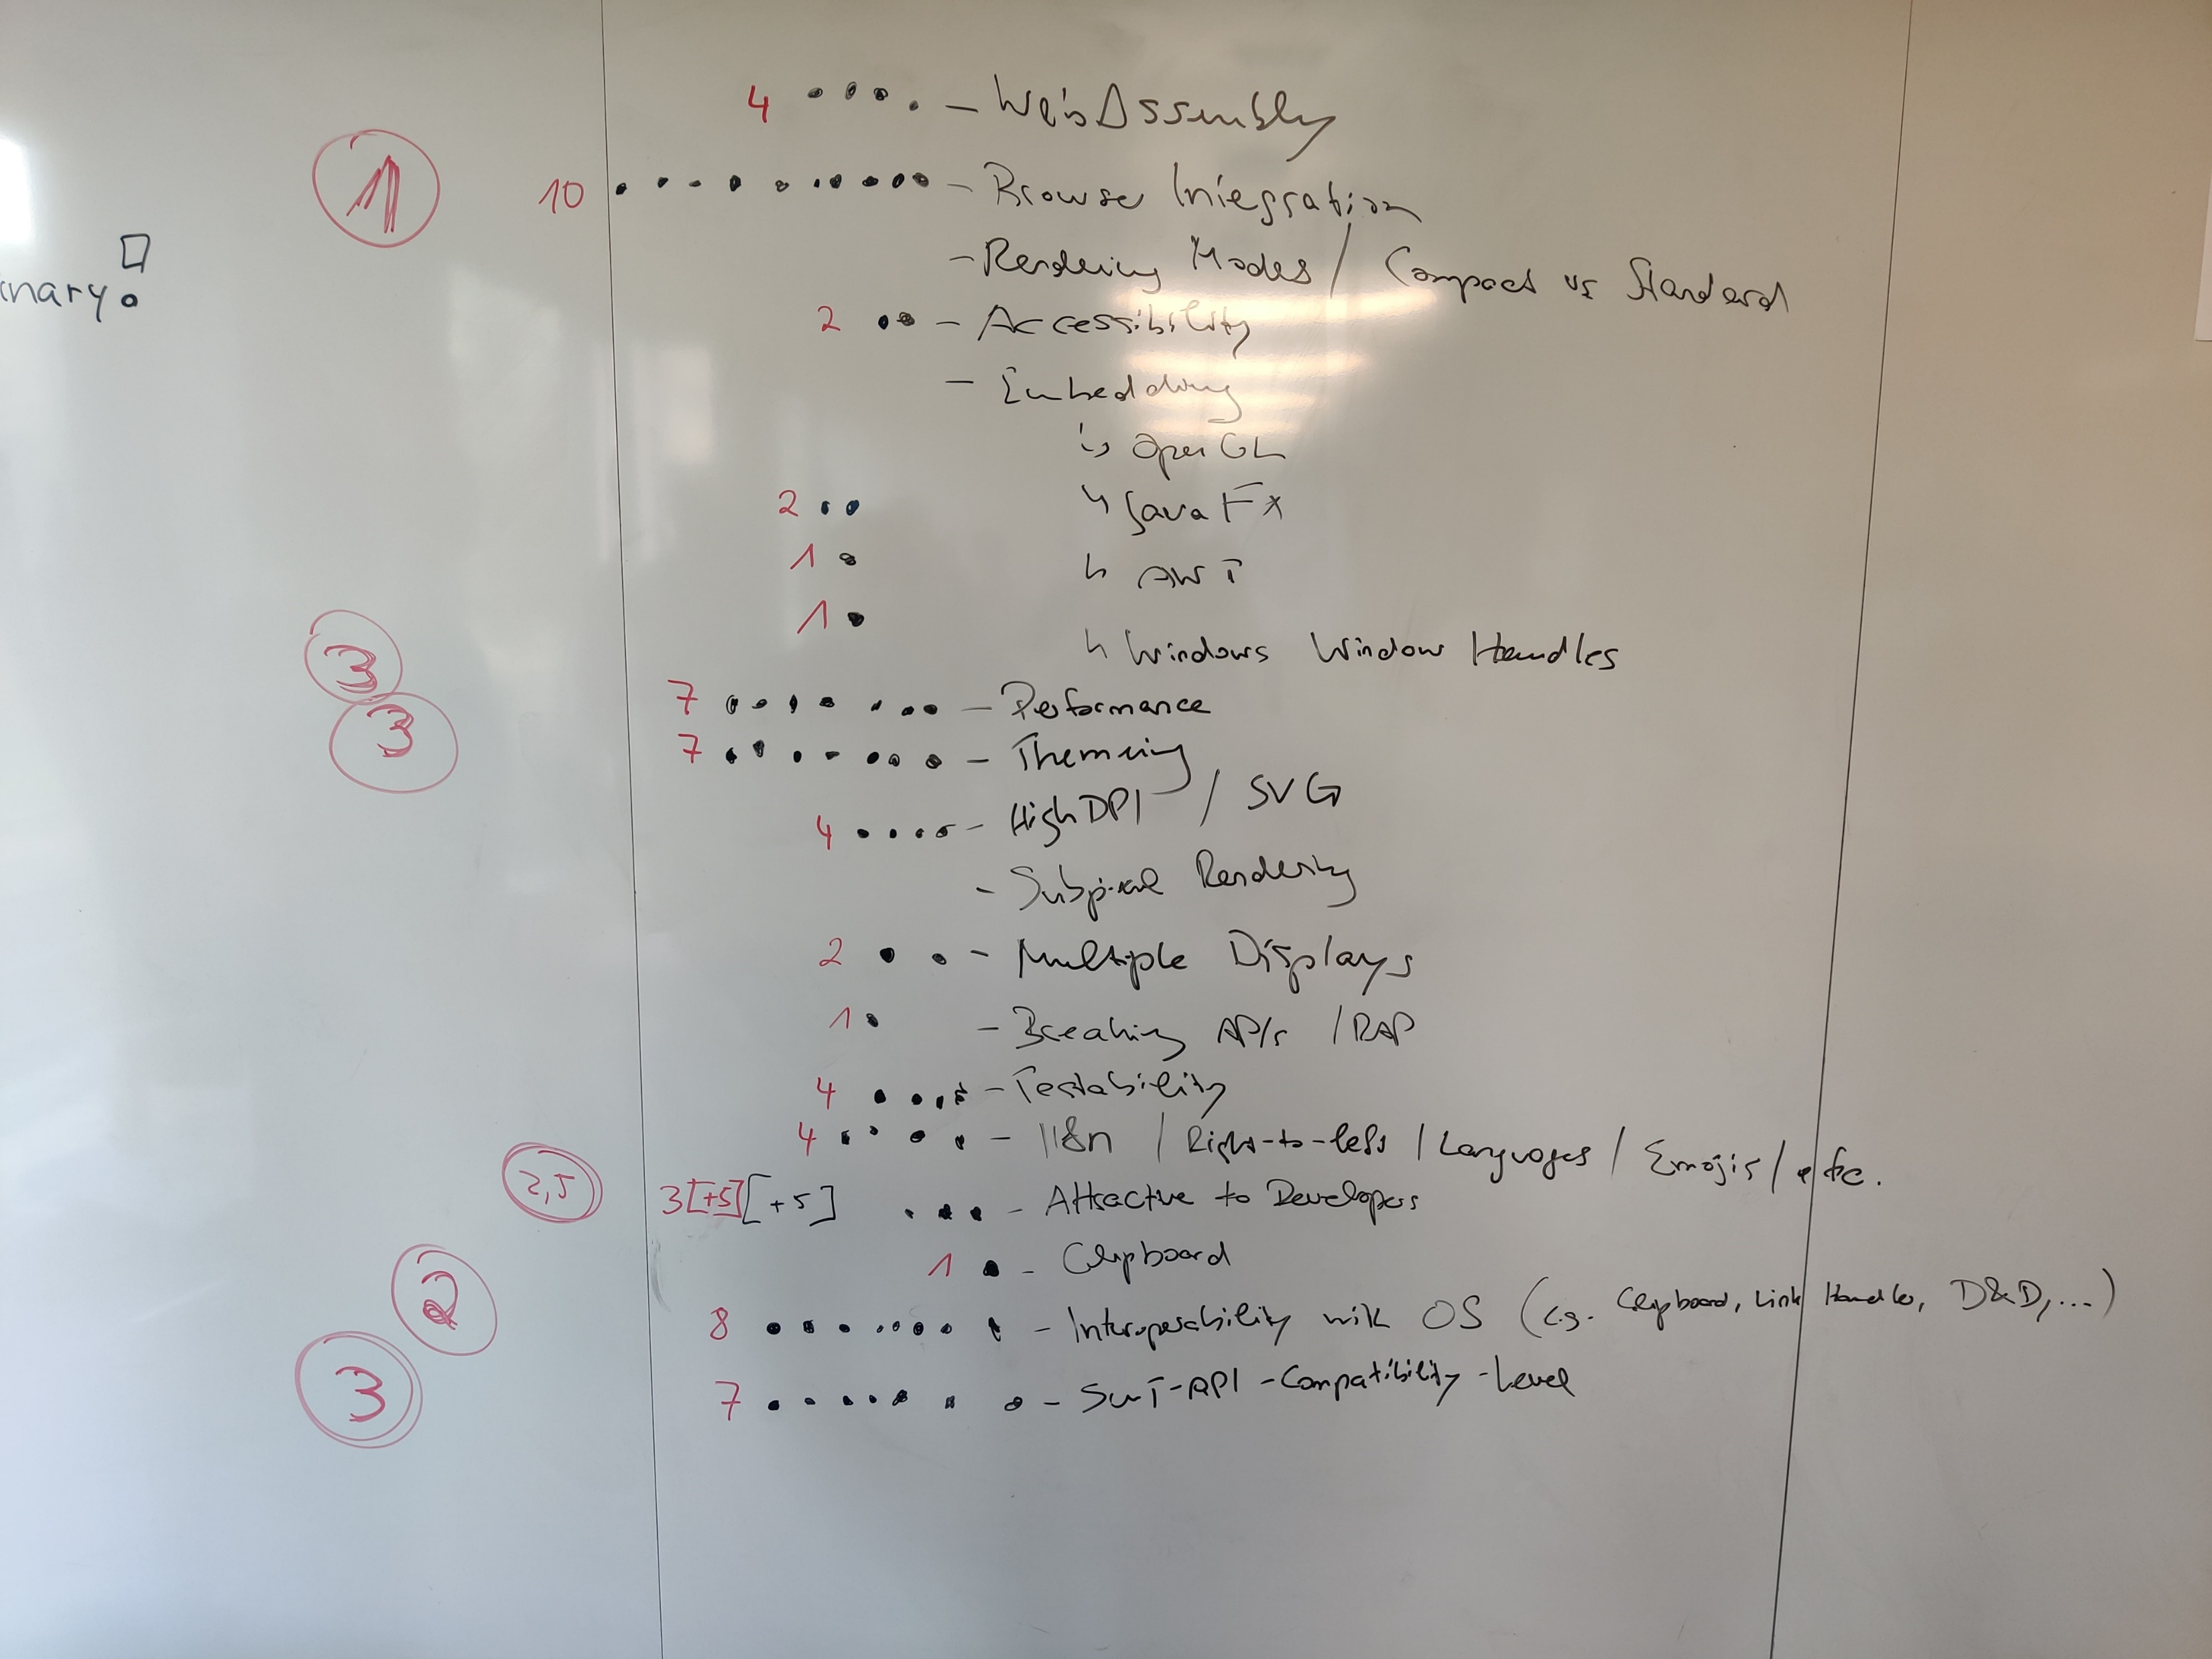 4 - WebAssembly
1 10 - Browser Integration
- Rendering Modes / Compact vs Standard
nary!
2 - Accessibility
- Embedding
↳ OpenGL
2 ↳ JavaFX
1 ↳ AWT
1 ↳ Windows Window Handles
3 7 - Performance
3 7 - Themeing
4 - HighDPI / SVG
- Subpixel Rendering
2 - Multiple Displays
1 - Breaking APIs / RAP
4 - Testability
4 - I18n / Right-to-left / Languages / Emojis / etc.
2,5 3[+5][+5] - Attractive to Developers
1 - Clipboard
2 8 - Interoperability with OS (e.g. Clipboard, Link Handler, D&D, ...)
3 7 - SWT-API-Compatibility-Level